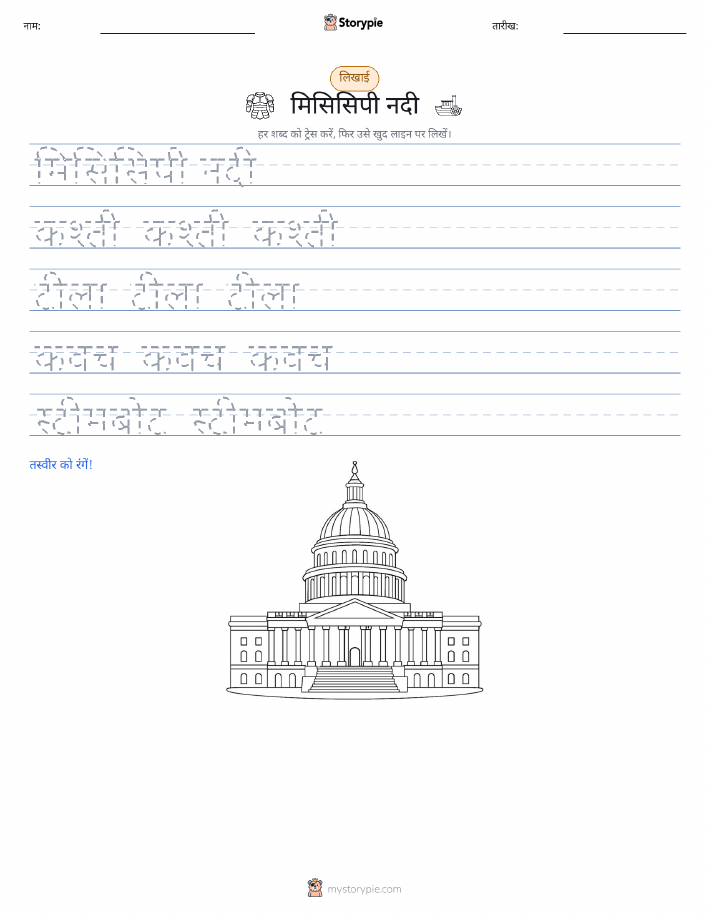 नाम:
Storypie
तारीख:
लिखाई
मिसिसिपी नदी
हर शब्द को ट्रेस करें, फिर उसे खुद लाइन पर लिखें।
मिसिसिपी नदी
कश्ती कश्ती कश्ती
टीला टीला टीला
कवच कवच कवच
स्टीमबोट स्टीमबोट
तस्वीर को रंगें!
mystorypie.com